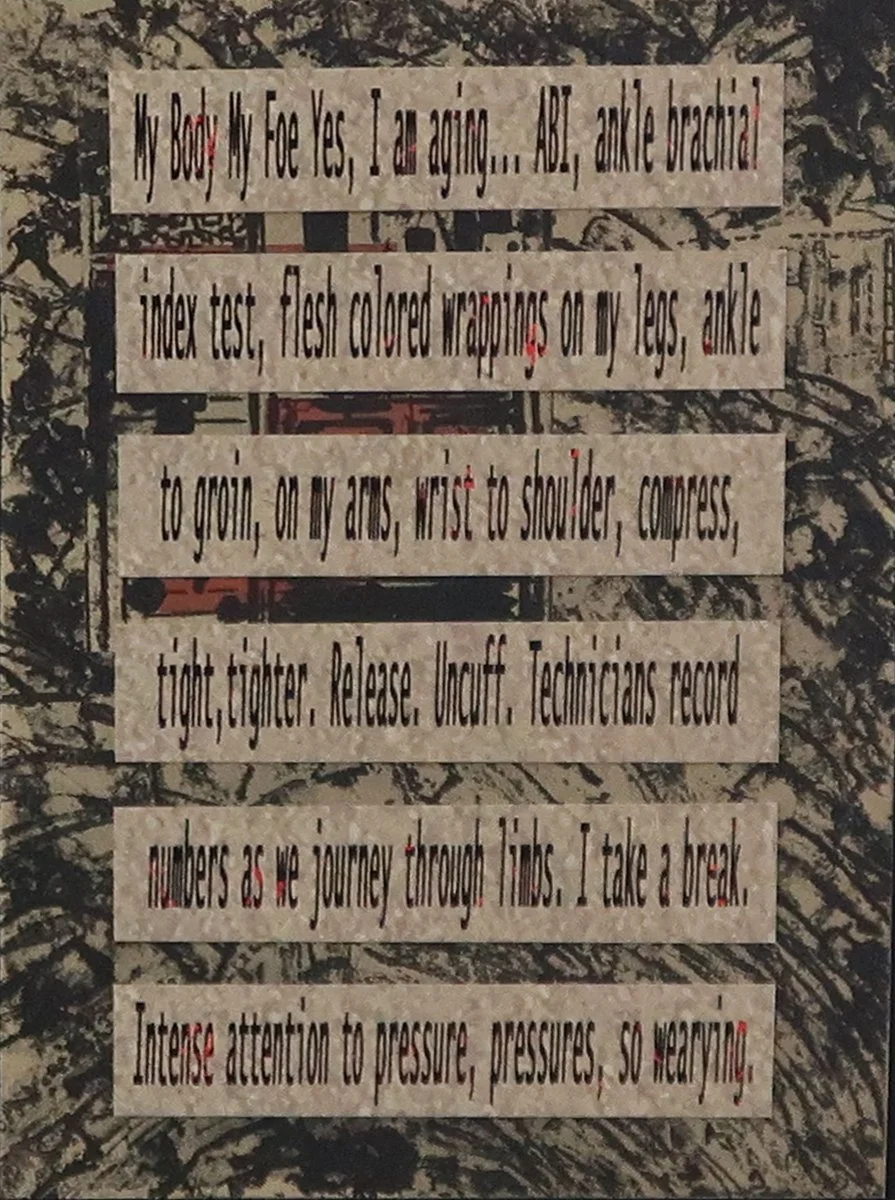 My Body My Foe Yes, I am aging... ABI, ankle brachial
index test, flesh colored wrappings on my legs, ankle
to groin, on my arms, wrist to shoulder, compress,
tight,tighter. Release. Uncuff. Technicians record
numbers as we journey through limbs. I take a break.
Intense attention to pressure, pressures, so wearying.